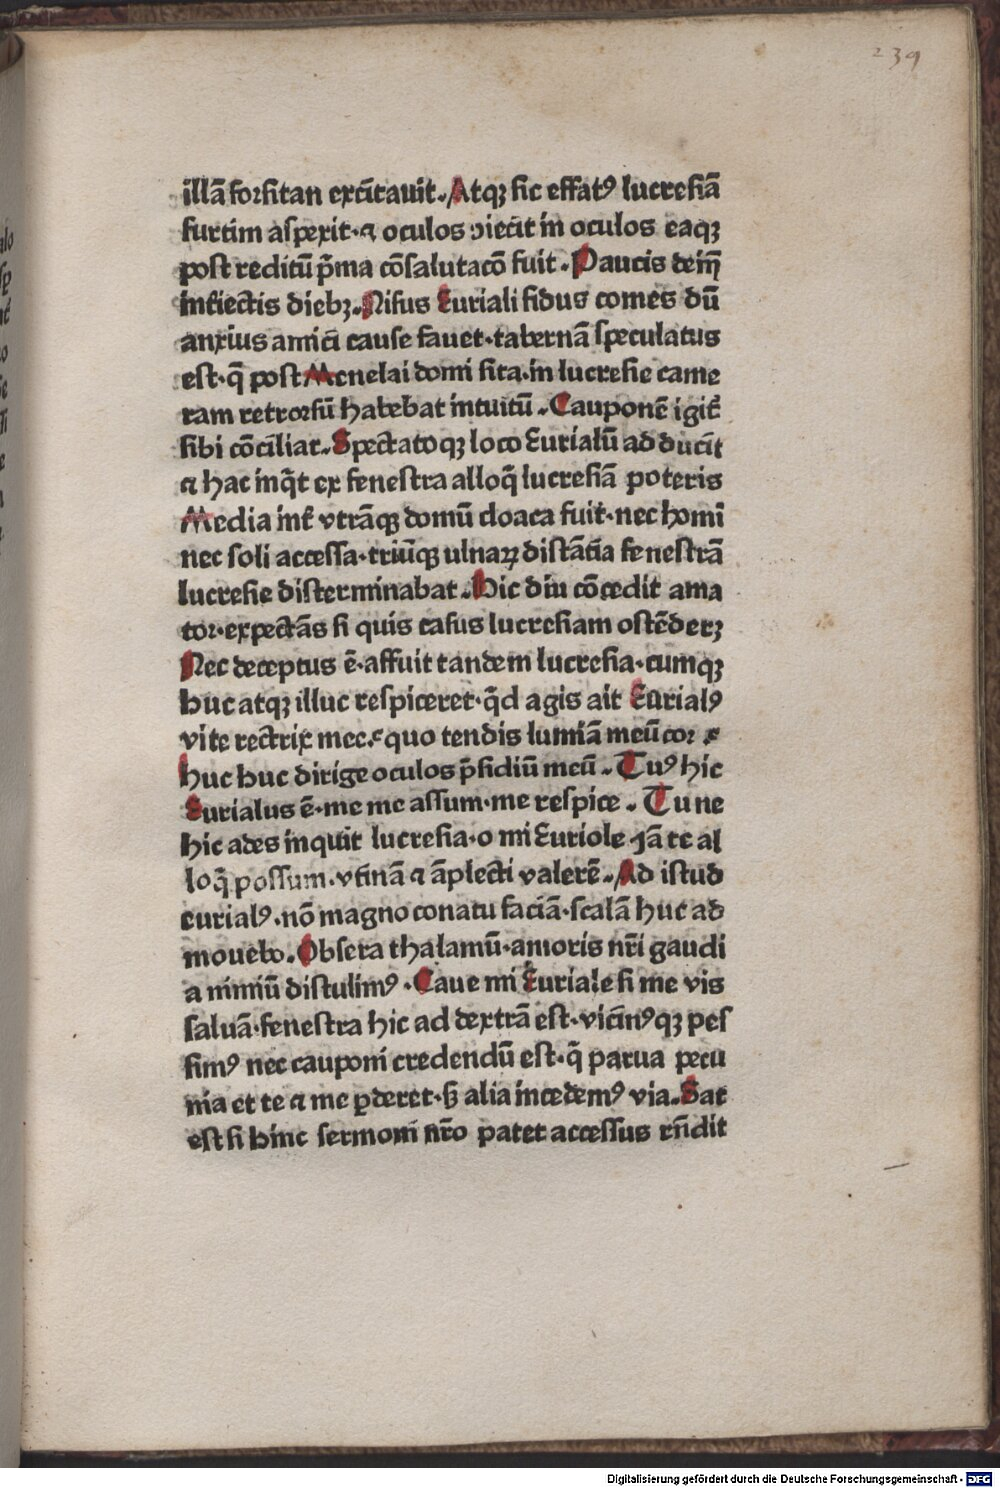 239
illā forſitan excitauit. Atqꝫ ſic effatꝰ lucreſiā
furtim aſpexit·⁊ oculos ↄiecit in oculos eaqꝫ
poſt reditū p̄ma cōſalutacō fuit. Paucis dein̄
int̄iectis diebꝫ. Niſus Euriali fidus comes dū
anxius amici cauſe fauet·tabernā ſpeculatus
eſt·q̄ poſt Menelai domi ſita·in lucreſie came
ram retrorſū habebat intuitū. Cauponē igit̄
ſibi cōciliat. Spectato qꝫ loco Eurialū ad ducit
⁊ hac inq̄t ex feneſtra alloq̄ lucreſiā poteris
Media int̄ vtrāqꝫ domū cloaca fuit·nec homī
nec ſoli acceſſa·triūqꝫ ulnaꝝ diſtātia feneſtrā
lucreſie diſterminabat. Hic diu cōcedit ama
tor·expectās ſi quis caſus lucreſiam oſtēderꝫ
Nec deceptus ē·affuit tandem lucreſia·cumqꝫ
huc atqꝫ illuc reſpiceret·q̄d agis ait Eūrialꝰ
vite rectrix mee·quo tendis lumiā meū cor
huc huc dirige oculos p̄ſidiū meū. Tuꝰ hic
Eurialus ē·me me aſſum·me reſpice. Tu ne
hic ades inquit lucreſia·o mi Euriole·Jā te al
loq̄ poſſum·vtinā ⁊ āplecti valerē. Ad iſtud
eurialꝰ·nō magno conatu faciā·ſcalā huc ad
mouebo. Obſera thalamū·amoris nr̄i gaudi
a nimiū diſtulimꝰ. Caue mi Euriale ſi me vis
ſaluā·feneſtra hic ad dextrā eſt·vicinꝰqꝫ peſ
ſimꝰ nec cauponi credendū eſt·q̄ parua pecu
nia et te ⁊ me ꝑderet·ſꝫ alia incedemꝰ via. Sat
eſt ſi hinc ſermoni nr̄o patet acceſſus rn̄dit
Digitalisierung gefördert durch die Deutsche Forschungsgemeinschaft - DFG